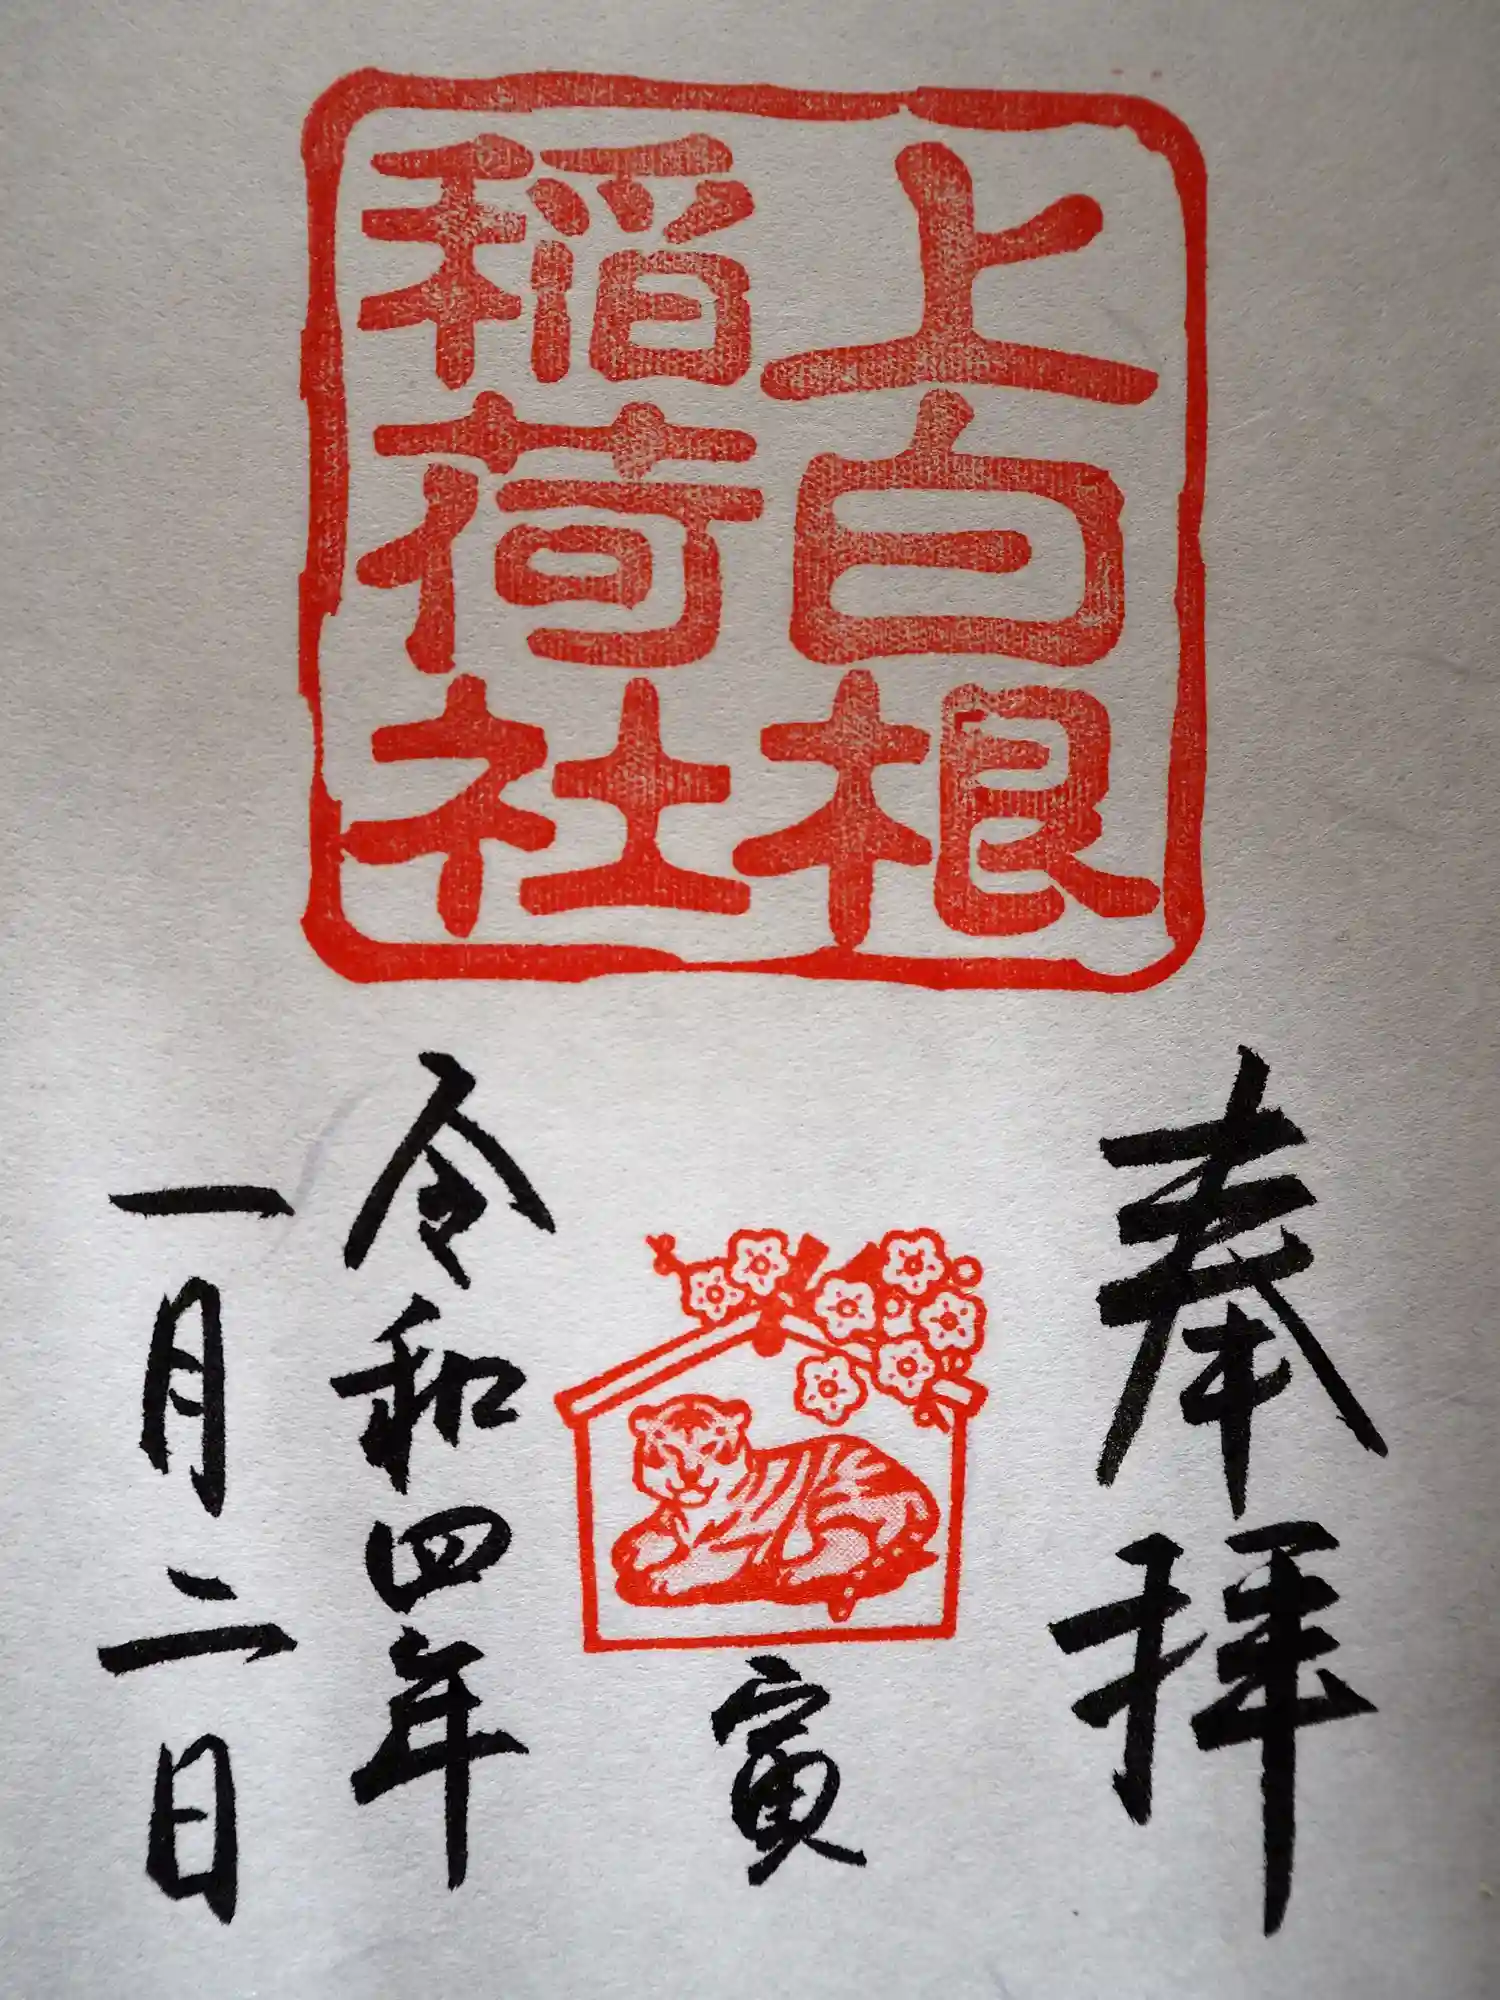 上白根
稲荷社
奉拝
寅
令和四年
一月二日